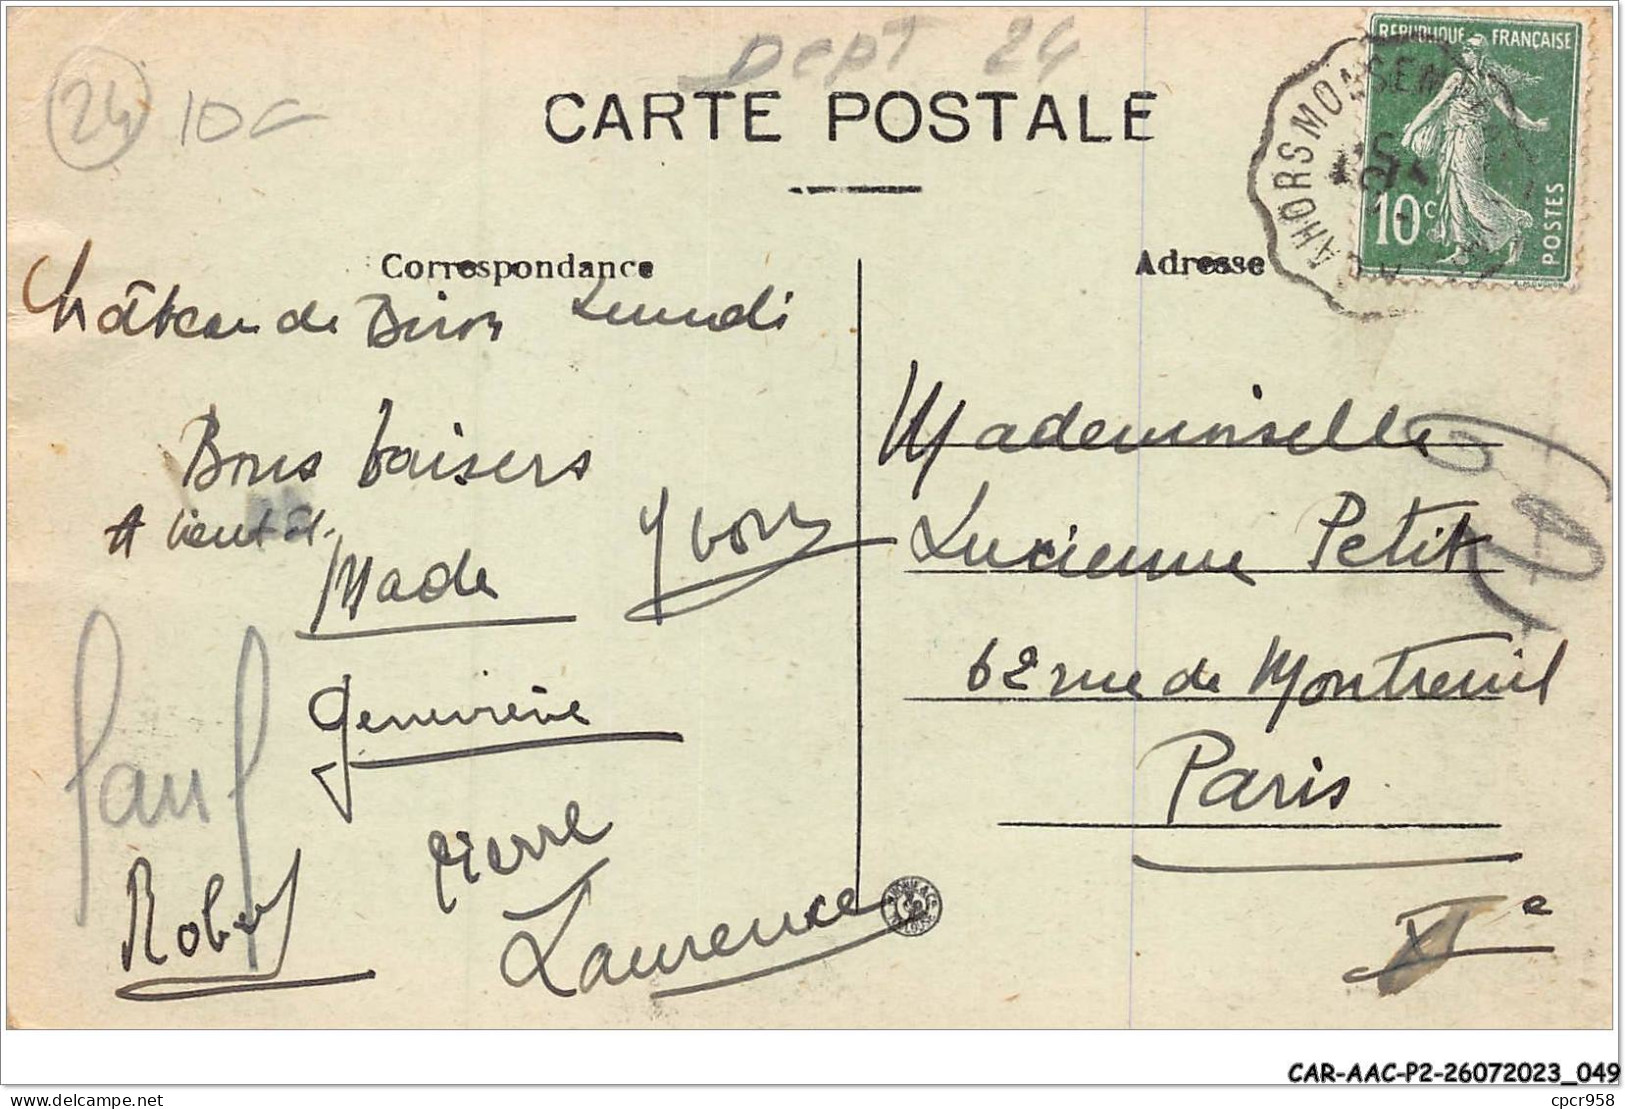 Dept 24
24 10 c
CARTE POSTALE
RÉPUBLIQUE FRANÇAISE
10c
POSTES
CAHORS MONSEM
Correspondance
Adresse
Château de Biron Lundi
Bons baisers
A bientôt.
Made
Yvon
Geneviève
Paul
Pierre
Robert
Laurence
Mademoiselle
Lucienne Petit
62 rue de Montreuil
Paris
XIe
CAR-AAC-P2-26072023_049
cpcr958